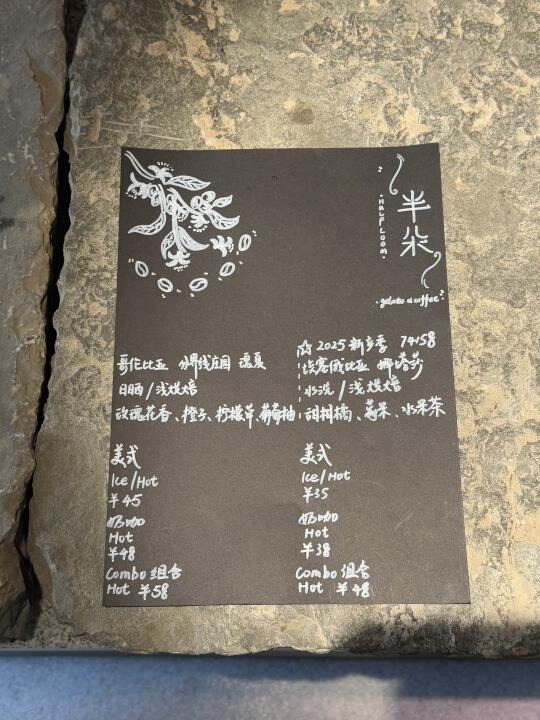 半朵
HALFLOOM
gelato & coffee
哥伦比亚 分界线庄园 瑰夏
日晒/浅烘焙
玫瑰花香、橙子、柠檬草、葡萄柚
美式
Ice/Hot
¥45
奶咖
Hot
¥48
Combo 组合
Hot ¥58
☆ 2025 新产季 74158
埃塞俄比亚 娜塔莎
水洗/浅烘焙
甜柑橘、莓果、水果茶
美式
Ice/Hot
¥35
奶咖
Hot
¥38
Combo 组合
Hot ¥48